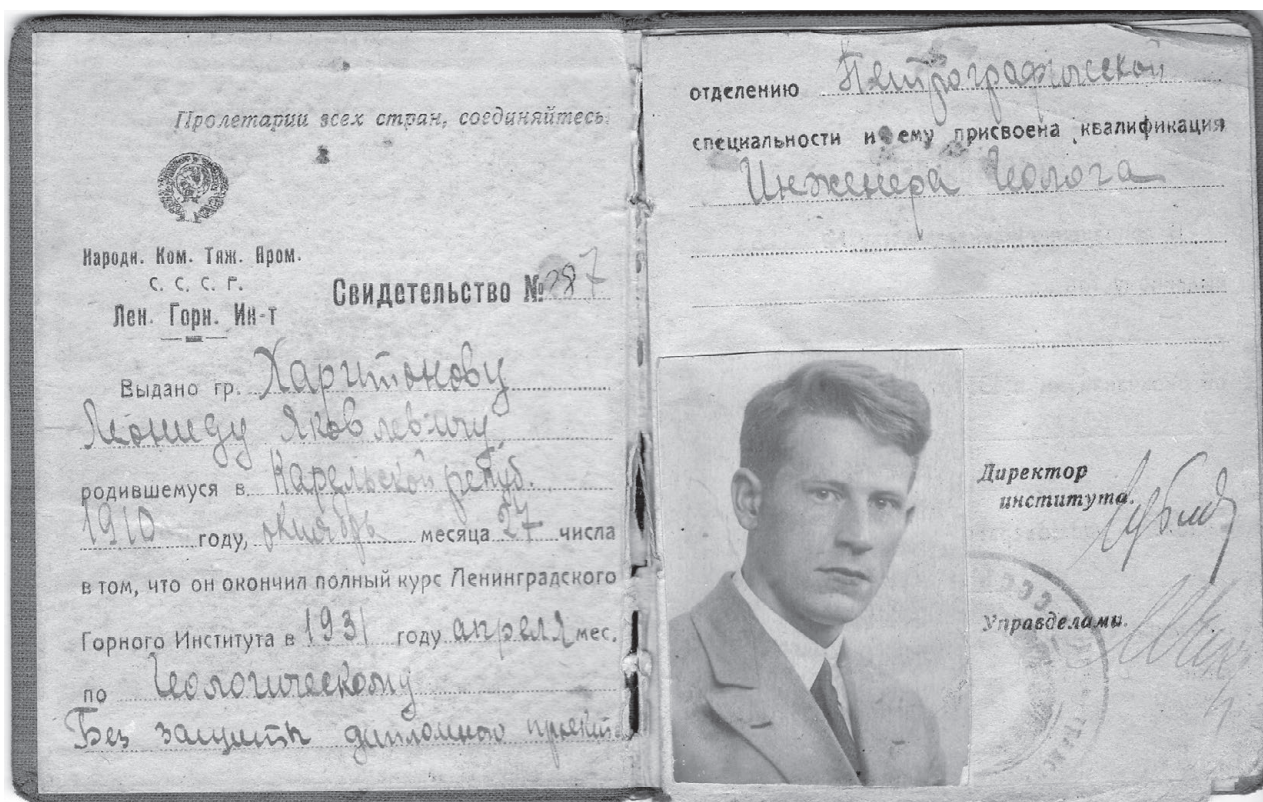 Пролетарии всех стран, соединяйтесь
Народн. Ком. Тяж. Пром.
С. С. С. Р.
Лен. Горн. Ин-т
Свидетельство № 287
Выдано гр. Харитонову
Леониду Яковлевичу
родившемуся в Карельской респуб.
1910 году, октябрь месяца 27 числа
в том, что он окончил полный курс Ленинградского
Горного Института в 1931 году апреля мес.
по Геологическому
Без защиты дипломного проекта
отделению Петрографической
специальности и ему присвоена квалификация
Инженера Геолога
Директор
института.
Управделами.
СССР